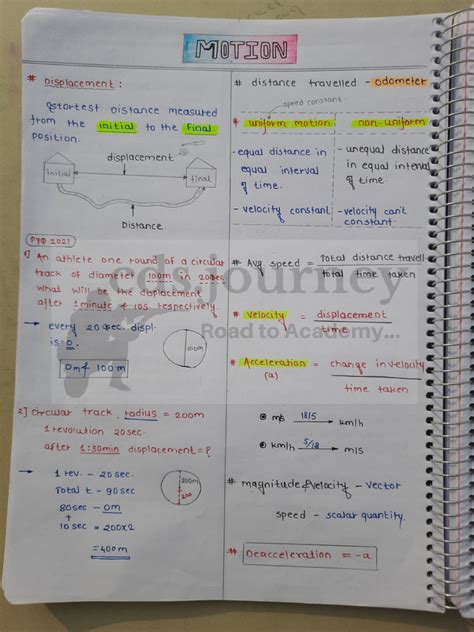 MOTION
# Displacement :
Shortest Distance measured
from the initial to the Final
position.
displacement
initial
final
Distance
PYQ 2021
1) An athlete one round of a circular
track of diameter 100m in 20sec
what will be the displacement
after 1 minute & 10s respectively.
→ every 20 sec. displ.
is 0.
100m
0m & 100m
2] Circular track, radius = 200m
1 revolution 20sec.
after 1:30min displacement = ?
→ 1 rev. - 20 sec.
Total t - 90sec
80sec - 0m
+
10sec = 200x2
= 400m
200m
200
# distance travelled - odometer
speed constant.
* uniform motion
non-uniform
- equal distance in
equal interval
of time.
- velocity constant
- unequal distance
in equal interval
of time.
- velocity can't
constant.
# Avg. speed = Total distance travell
total time taken
* velocity = displacement
time
* Acceleration = change in velocity
(a) time taken
@ m/s 18/5 → km/h
km/h 5/18 → m/s
# magnitude of velocity - vector
speed - scalar quantity.
# Deacceleration = -a
cdsjourney
Road to Academy...